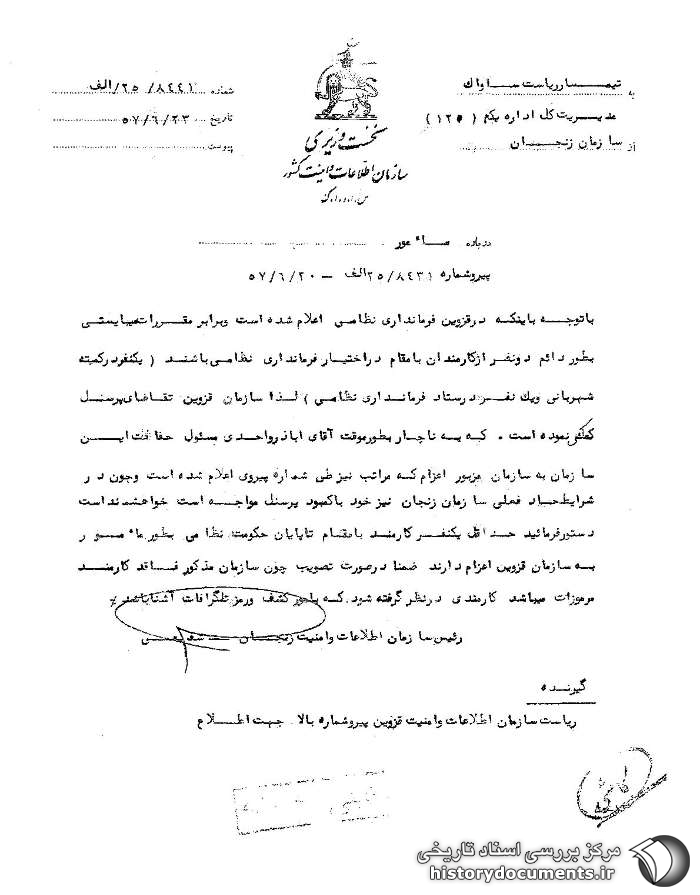 به تیمسار ریاست ساواک
مدیریت کل اداره یکم (۱۲۵)
از سازمان زنجان
نخست وزیری
سازمان اطلاعات و امنیت کشور
س.ا.و.ا.ک
شماره ۲۵/۸۴۴۱/الف
تاریخ ۵۷/۶/۲۳
پیوست
درباره مأمور
پیرو شماره ۲۵/۸۴۳۱الف – ۵۷/۶/۲۰
با توجه باینکه در قزوین فرمانداری نظامی اعلام شده است و برابر مقررات میبایستی
بطور دائم دو نفر از کارمندان بامقام در اختیار فرمانداری نظامی باشند ( یکنفر در کمیته
شهربانی و یك نفر در ستاد فرمانداری نظامی ) لذا سازمان قزوین تقاضای پرسنل
کمکی نموده است . که به ناچار بطور موقت آقای اباذر واحدی مسئول حفاظت این
سازمان به سازمان مزبور اعزام که مراتب نیز طی شماره پیروی اعلام شده است وچون در
شرایط حاد فعلی سازمان زنجان نیز خود باکمبود پرسنل مواجه است خواهشمند است
دستور فرمائید حداقل یکنفر کارمند بامقام تا پایان حکومت نظامی بطور مأمور
به سازمان قزوین اعزام دارند ضمنا در صورت تصویب چون سازمان مذکور فاقد کارمند
مرموزات میباشد کارمندی در نظر گرفته شود که بامور کشف ورمز تلگرافات آشنا باشد
رئیس سازمان اطلاعات وامنیت زنجان
گیرنده
ریاست سازمان اطلاعات وامنیت قزوین پیرو شماره بالا جهت اطلاع
مرکز بررسی اسناد تاریخی
historydocuments.ir